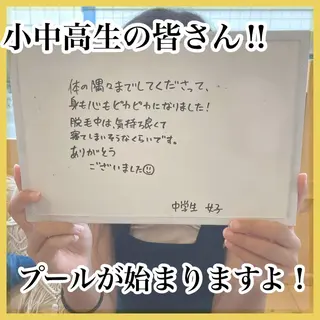 小中高生の皆さん!!
体の隅々までしてくださって、
身も心もピカピカになりました!
脱毛中は、気持ち良くて
寝てしまいそうなくらいです。
ありがとう
ございました
中学生 女子
プールが始まりますよ!